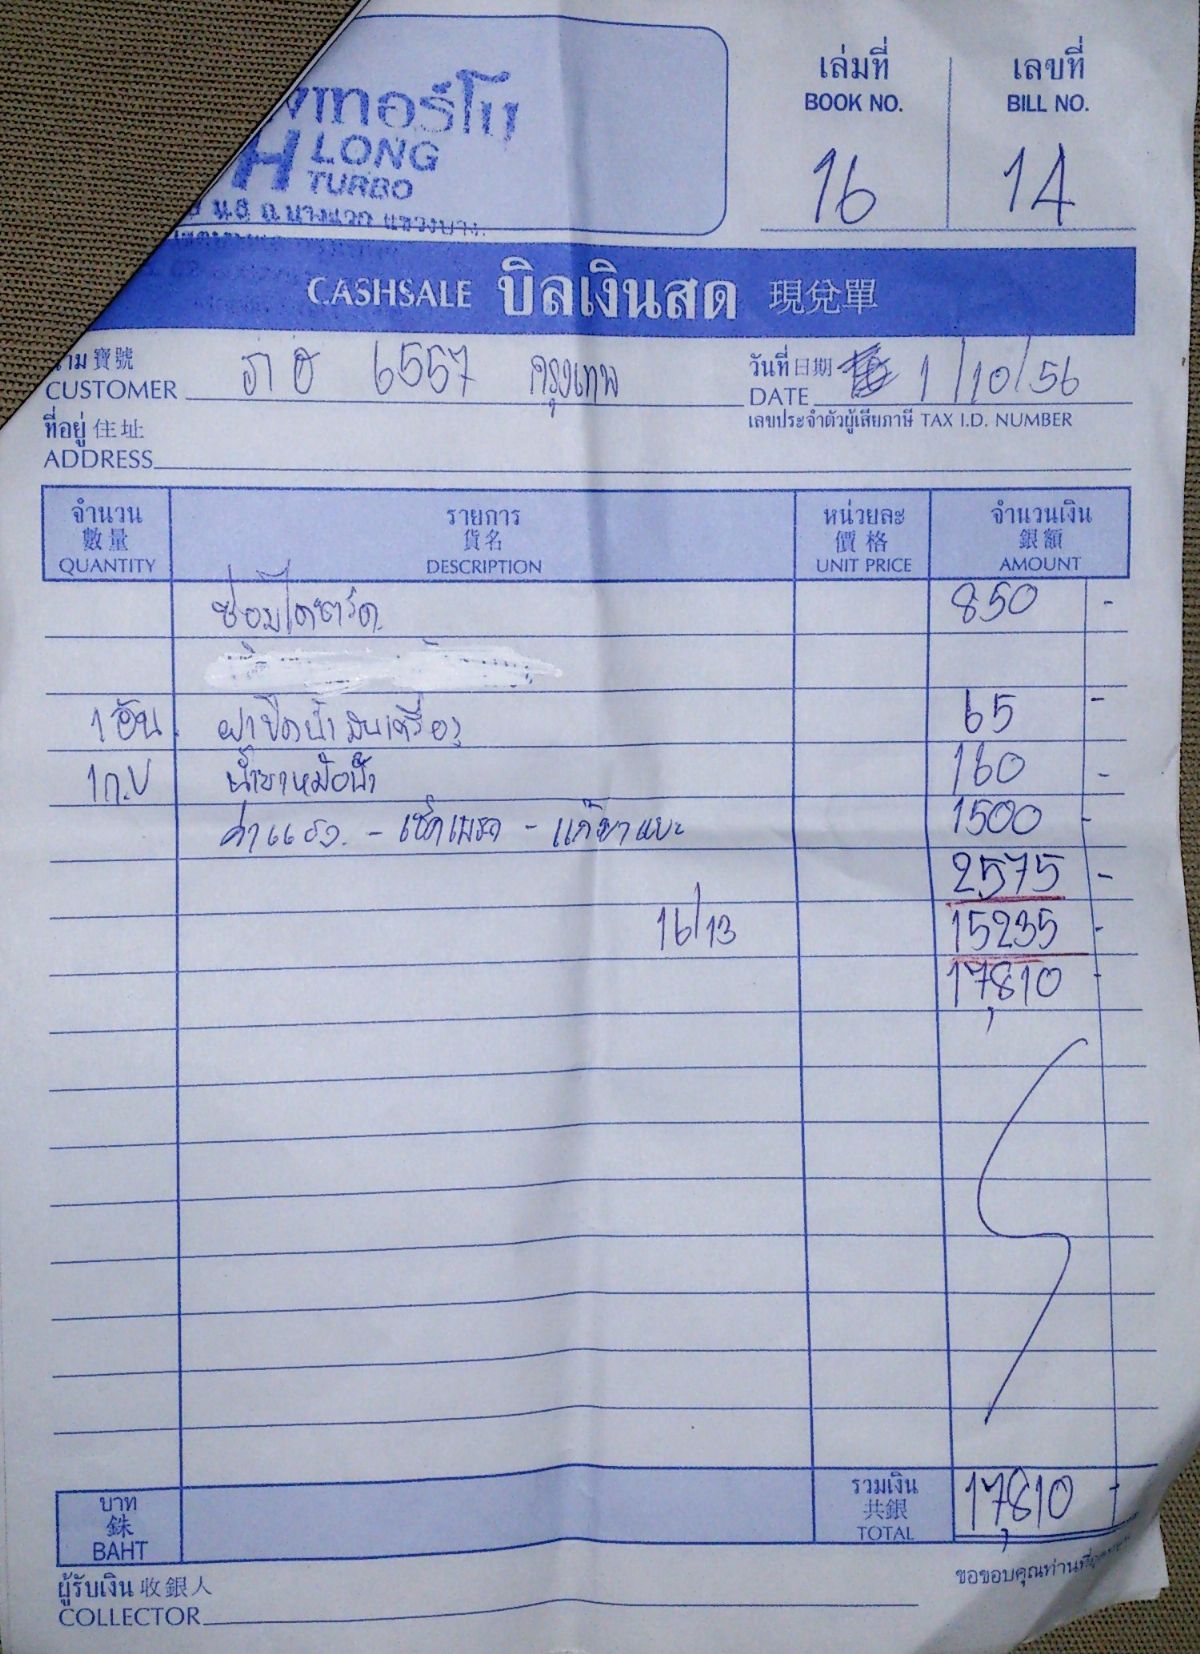 เทอร์โบ
H LONG
TURBO
ถ.บางแวก แขวงบาง
เล่มที่ เลขที่
BOOK NO. BILL NO.
16 14
CASHSALE บิลเงินสด 現兌單
นาม 寶號 6557 กรุงเทพ วันที่ 日期 1/10/56
CUSTOMER DATE
ที่อยู่ 住址 เลขประจำตัวผู้เสียภาษี TAX I.D. NUMBER
ADDRESS
จำนวน รายการ หน่วยละ จำนวนเงิน
數量 貨名 價格 銀額
QUANTITY DESCRIPTION UNIT PRICE AMOUNT
ซ่อมไดชาร์ด 850 -
1 อัน ฝาปิดน้ำมันเครื่อง 65 -
1 ก.ป น้ำยาหม้อน้ำ 160 -
ค่าแรง - เช็คเบรค - แก้ขาแบะ 1500 -
2575 -
16/13 15235 -
17,810 -
บาท รวมเงิน 17,810 -
銖 共銀
BAHT TOTAL
ผู้รับเงิน 收銀人 ขอขอบคุณท่านที่
COLLECTOR